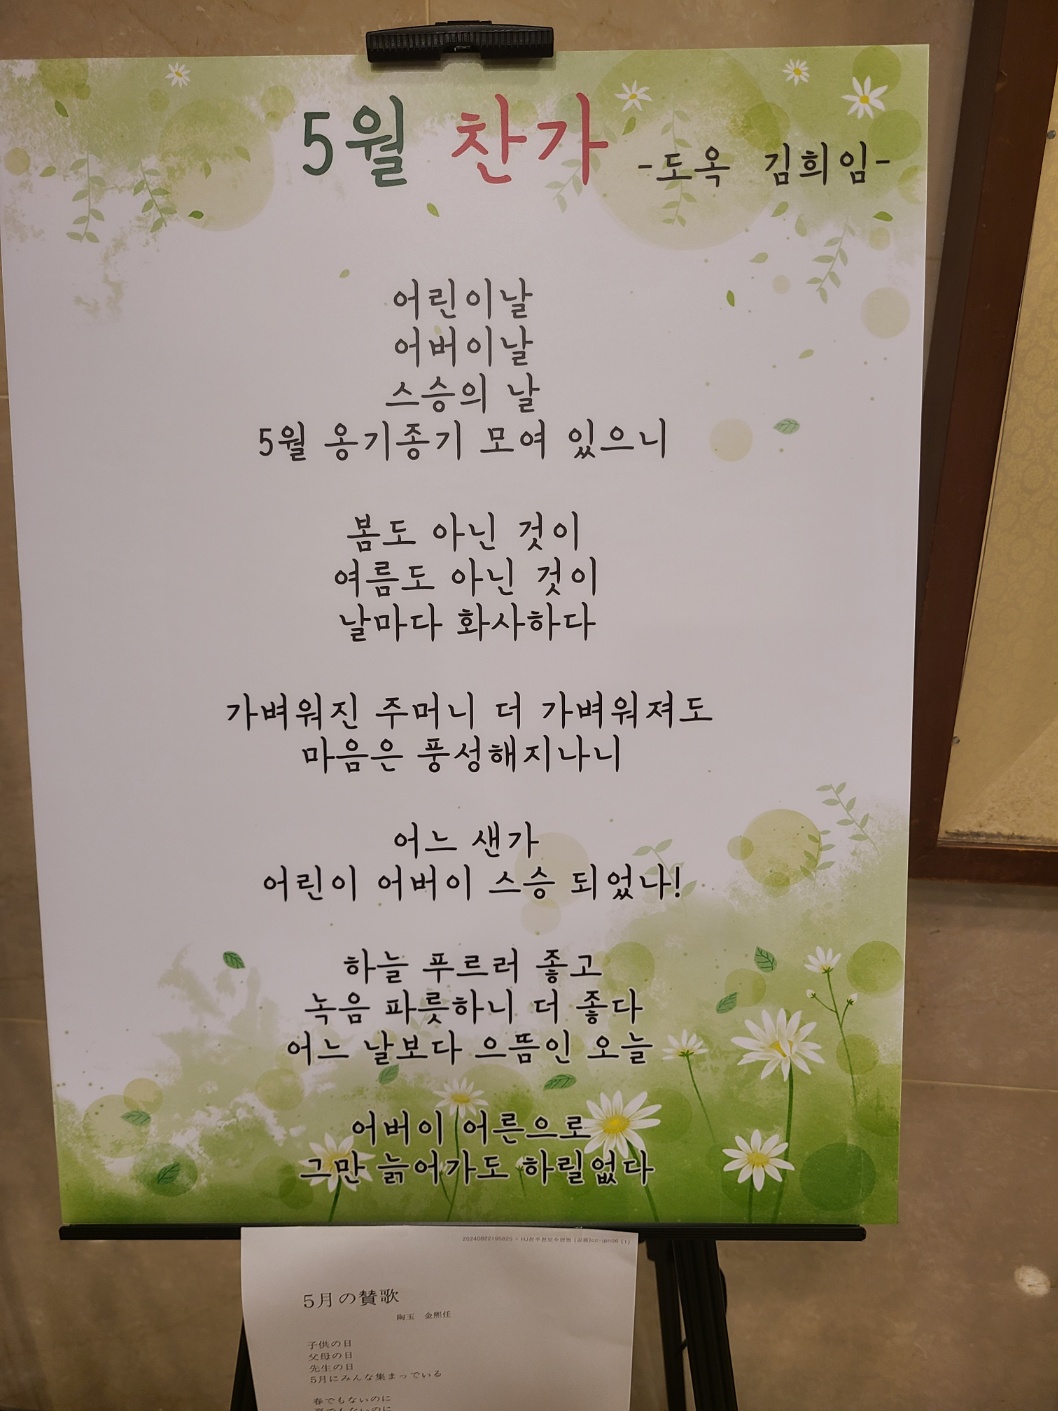 5월 찬가 -도옥 김희임-
어린이날
어버이날
스승의 날
5월 옹기종기 모여 있으니
봄도 아닌 것이
여름도 아닌 것이
날마다 화사하다
가벼워진 주머니 더 가벼워져도
마음은 풍성해지나니
어느 샌가
어린이 어버이 스승 되었나!
하늘 푸르러 좋고
녹음 파릇하니 더 좋다
어느 날보다 으뜸인 오늘
어버이 어른으로
그만 늙어가도 하릴없다
5月の賛歌
陶玉 金熙任
子供の日
父母の日
先生の日
5月にみんな集まっている
春でもないのに